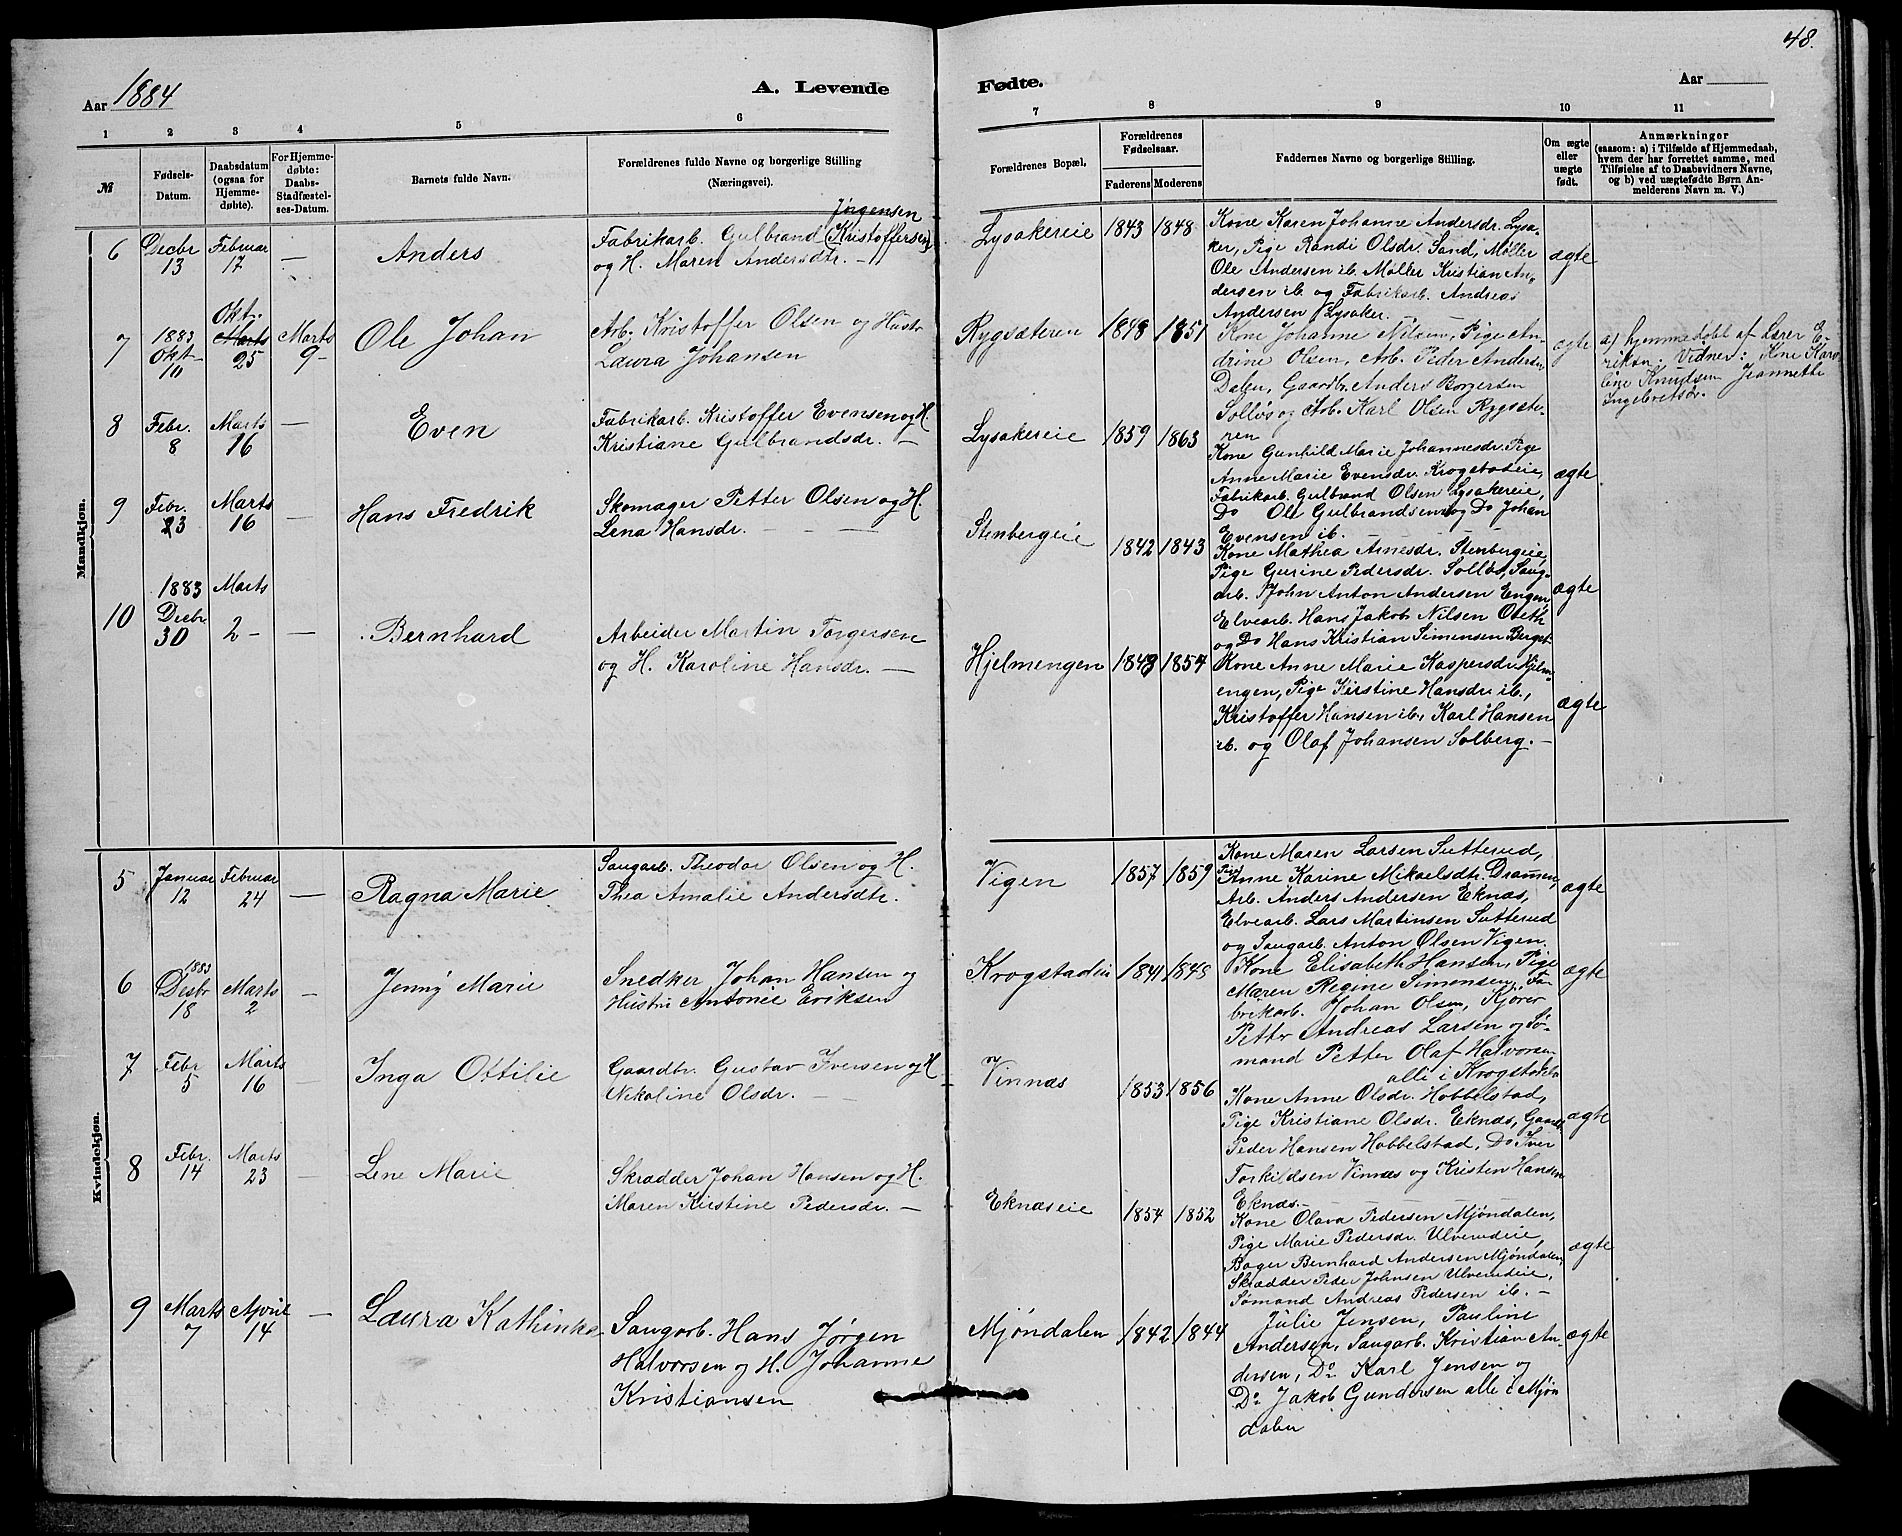 48.
Aar 1884
A. Levende
Fødte.
Aar
1 2 3 4 5 6 7 8 9 10 11
№
Fødsels-
Datum.
Daabsdatum
(ogsaa for
Hjemme-
døbte).
For Hjemme-
døbte:
Daabs-
Stadfæstel-
ses-Datum.
Barnets fulde Navn.
Forældrenes fulde Navne og borgerlige Stilling
(Næringsvei).
Forældrenes Bopæl,
Forældrenes
Fødselsaar.
Faderens Moderens
Faddernes Navne og borgerlige Stilling.
Om ægte
eller
uægte
født.
Anmærkninger
(saasom: a) i Tilfælde af Hjemmedaab,
hvem der har forrettet samme, med
Tilføielse af to Daabsvidners Navne,
og b) ved uægtefødte Børn An-
melderens Navn m. V.)
Mandkjøn.
6
Decbr
13
Februar
17
—
Anders
Jörgensen
Fabrikarb. Gulbrand (Kristoffersen)
og H. Maren Andersdtr. —
Lysakereie 1843 1848
Kone Karen Johanne Andersdr. Lysa-
ker, Pige Randi Olsdr. Sand, Møller
Ole Andersen ib. Møller Kristian An-
dersen ib. og Fabrikarb. Andreas
Andersen Lysaker.
ægte
7
1883
Okt
10
Okt.
Marts
25
Marts
9
Ole Johan
Arb. Kristoffer Olsen og Hustr
Laura Johansen
Rygsæteren 1848 1851
Kone Johanne Nilsen, Pige An-
drine Olsen, Arb. Peder Andersen
Dalen, Gaardb. Anders Borgersen
Solløs og Arb. Karl Olsen Rygsæte-
ren
ægte
a) hjemmedøbt af Lærer E-
riksen. Vidner: Kone Karo-
line Knudsen Jeannette
Ingebretsdr.
8
Febr.
8
Marts
16
—
Even
Fabrikarb. Kristoffer Evensen og H.
Kristiane Gulbrandsdr. —
Lysakereie 1859 1863
Kone Gunhild Marie Johannesdr. Pige
Anne Marie Evensdr. Krogstadeie,
Fabrikarb. Gulbrand Olsen Lysakereie,
Do Ole Gulbrandsen og Do Johan
Evensen ib.
ægte
9
Febr.
23
Marts
16
—
Hans Fredrik
Skomager Petter Olsen og H.
Lena Hansdr. — — —
Stenbergeie 1842 1843
Kone Mathea Arnesdr. Stenbergeie,
Pige Gurine Pedersdr. Solløs, Saug-
arb. John Anton Andersen Engen,
Elvearb. Hans Jakob Nilsen
og Do Hans Kristian Simensen Berget
ægte
10
1883
Decbr
30
Marts
2 -
—
Bernhard
Arbeider Martin Torgersen
og H. Karoline Hansdr. —
Hjelmengen 1848 1854
Kone Anne Marie Kaspersdr. Hjelm-
engen, Pige Kirstine Hansdr ib.,
Kristoffer Hansen ib, Karl Hansen
ib. og Olaf Johansen Solberg. —
ægte
Kvindekjøn.
5
Januar
12
Februar
24
—
Ragna Marie
Saugarb. Theodor Olsen og H.
Thea Amalie Andersdtr.
Vigen 1857 1859
Kone Maren Larsen Sutterud,
Pige
Anne Karine Mikaelsdtr. Drammen,
Arb. Anders Andersen Eknæs,
Elvearb. Lars Martinsen Sutterud
og Saugarb. Anton Olsen Vigen.
ægte
6
1883
Desbr
18
Marts
2
—
Jenny Marie
Snedker Johan Hansen og
Hustru Antonie Eriksen
Krogstadeie 1841 1848
Kone Elisabeth Hansen, Pige
Maren Regine Simensen, Fa-
brikarb. Johan Olsen, Kjører
Petter Andreas Larsen og Sø-
mand Petter Olaf Halvorsen
alle i Krogstadeie
ægte
7
Febr
5
Marts
16
—
Inga Ottilie
Gaardbr. Gustav Iversen og H
Nikoline Olsdr. —
Vinnæs 1853 1856
Kone Anne Olsdr. Hobbelstad,
Pige Kristiane Olsdr. Eknæs, Gaardb.
Peder Hansen Hobbelstad, Do Iver
Torkildsen Vinnæs og Kristen Hansen
Eknæs. —
ægte
8
Febr.
14
Marts
23
—
Lene Marie
Skrædder Johan Hansen og H.
Maren Kirstine Pedersdr. —
Eknæseie 1854 1852
Kone Olava Pedersen Mjøndalen,
Pige Marie Pedersdr. Ulverudeie,
Bager Bernhard Andersen Mjøndalen,
Skrædder Peder Johnsen Ulverudeie,
Sømand Andreas Pedersen ib. —
ægte
9
Marts
7
April
14
—
Laura Kathinka
Saugarb. Hans Jørgen
Halvorsen og H. Johanne
Kristiansen
Mjöndalen 1842 1844
Julie Jensen, Pauline
Andersen, Saugarb. Kristian An-
dersen, Do Karl Jensen og
Do Jakob Gundersen alle i Mjøn
dalen
ægte